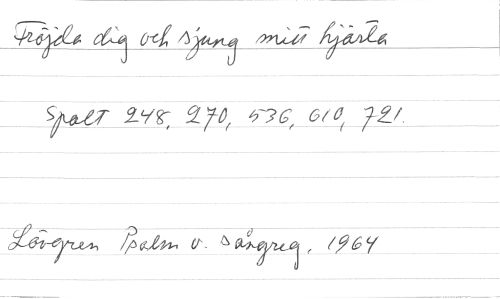 Fröjda dig och sjung mitt hjärta
Spalt 248, 270, 536, 610, 721.
Lövgren Psalm o. sångreg. 1964